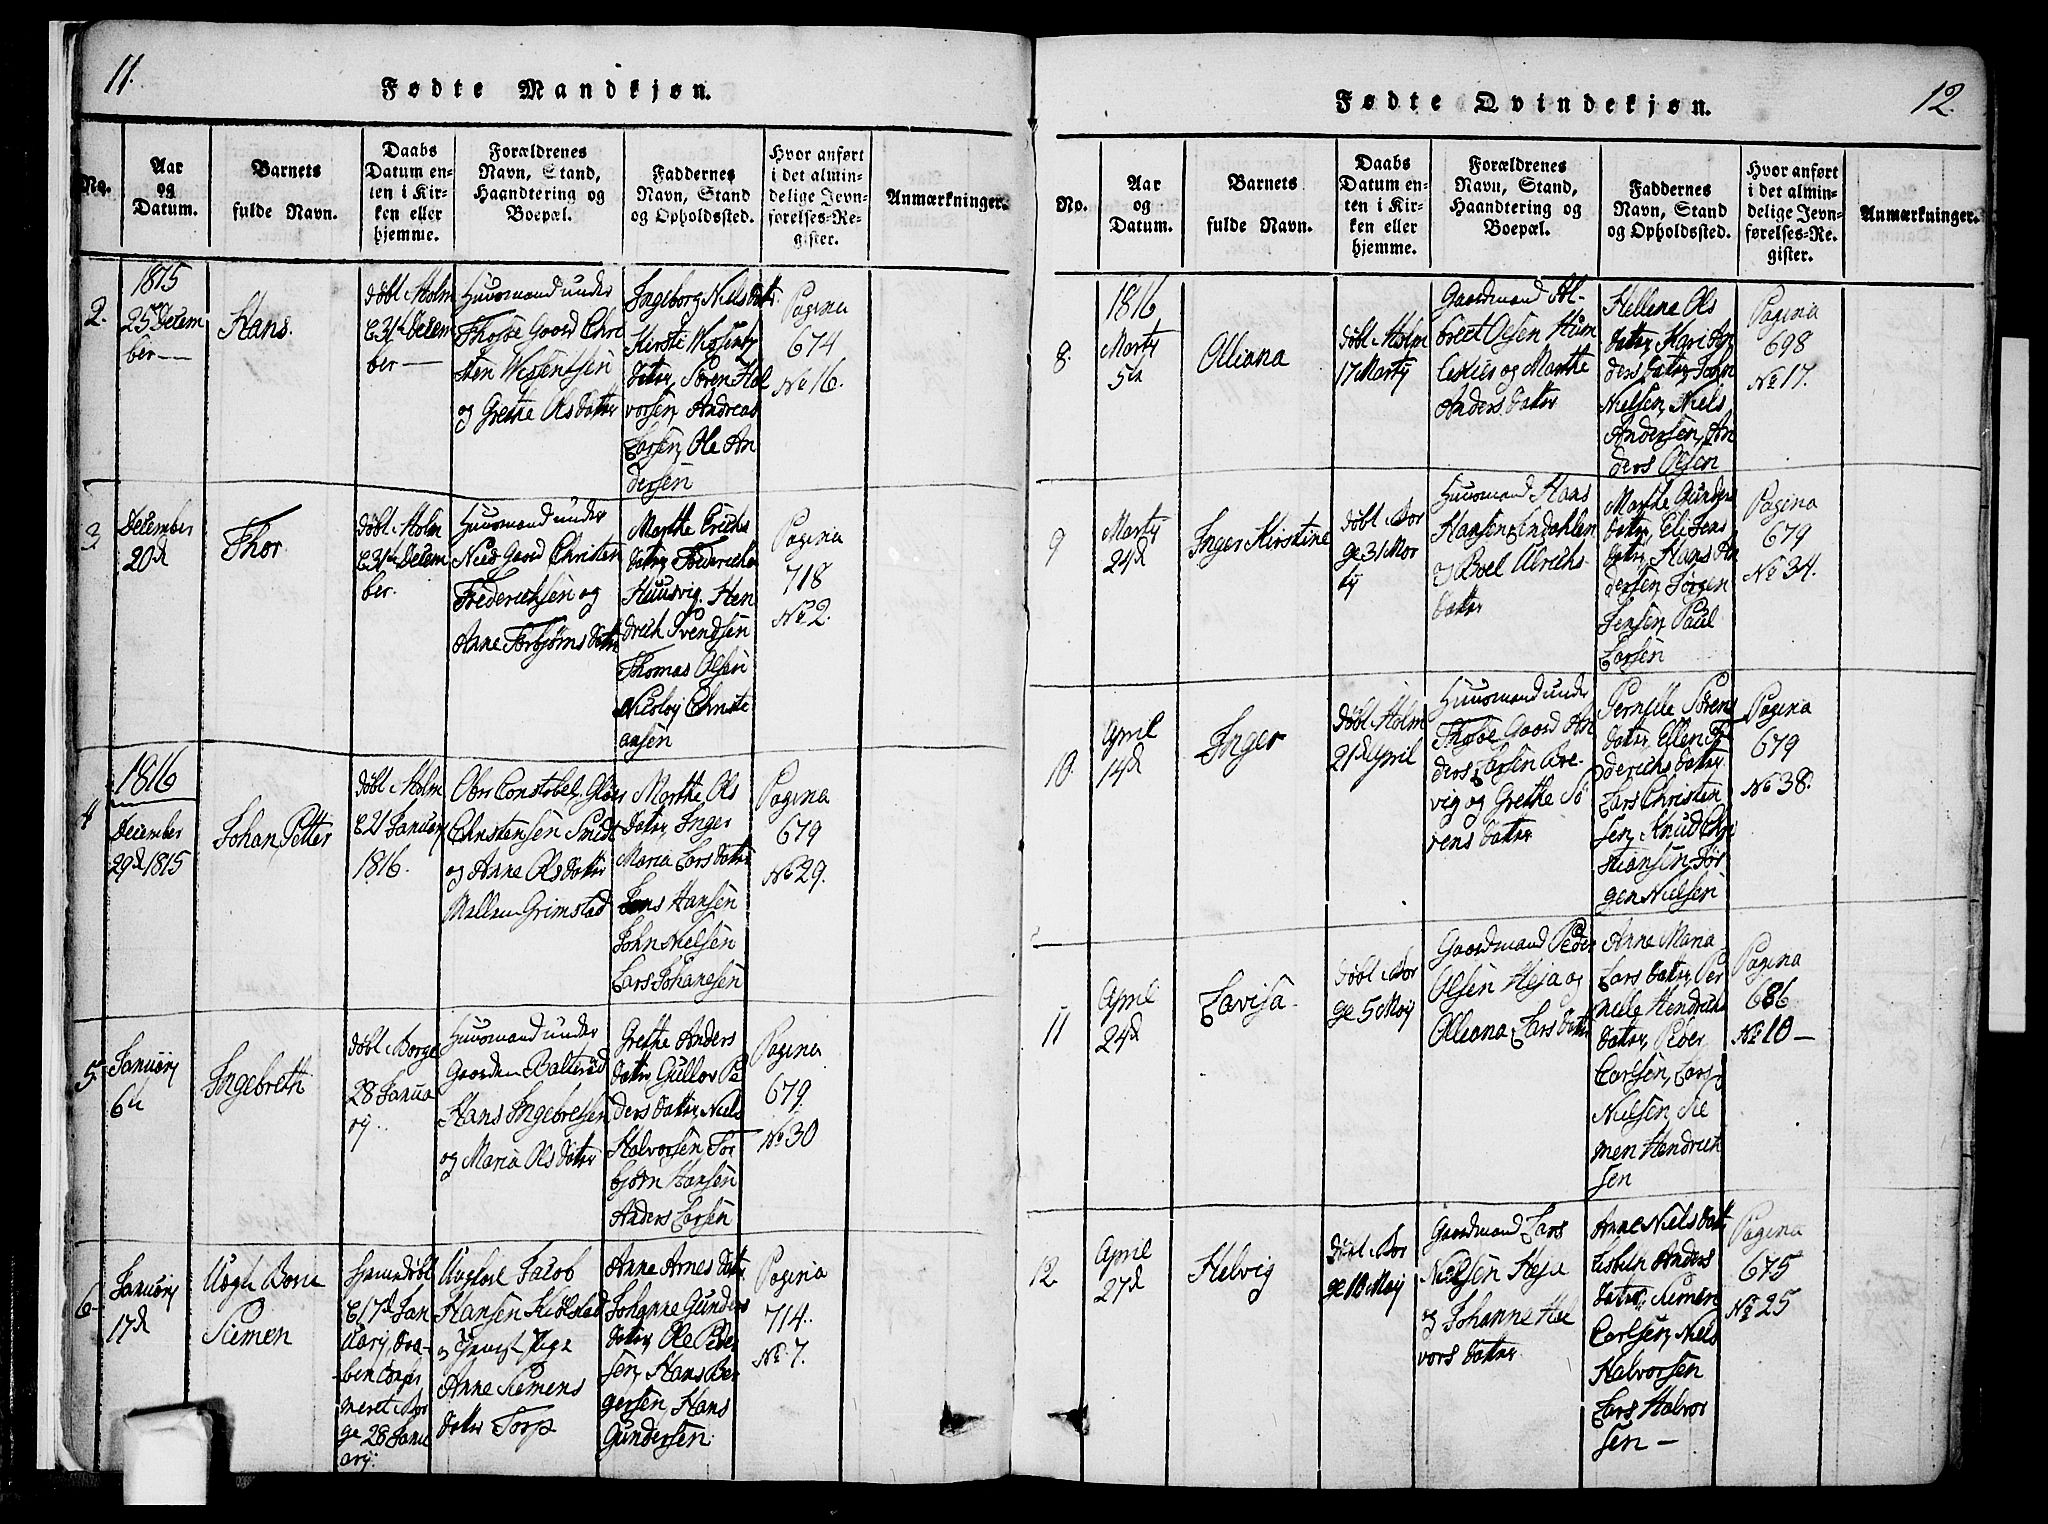 11.
Fødte Mandkjøn.
No.
Aar
og
Datum.
Barnets
fulde Navn.
Daabs
Datum en-
ten i Kir-
ken eller
hjemme.
Forældrenes
Navn, Stand,
Haandtering og
Boepæl.
Faddernes
Navn, Stand
og Opholdssted.
Hvor anført
i det almin-
delige Jevn-
førelses-Re-
gister.
Anmærkninger.
2.
1815
25 Decem
ber
Hans.
døbt Holm
31te Decem
ber
Huusmand under
Gaard Chri
sten
og Grethe Olsdatter
Ingeborg Nielsdatr
Kirsti
datter, Søren Hal
vorsen, Andreas
Larsen, Ole An
dersen
Pagina
674
No 16.
3.
December
20d
Thor
døbt Holm
31te Decem
ber.
Huusmand under
Gaard Christen
Frederichsen og
Anne Torbjørnsdatr
Marthe Erichs
datr, Fredericha
Huusvig. Hen
drich Svendsen
Thomas Olsen
Nicolaj Christi
ansen
Pagina
718
No 2.
4
1816
December
29d 1815
Johan Petter
døbt Holm
21 Januarij
1816.
Christensen Smidt
og Anne Olsdatter
Grimstad
Marthe Ols
datter, Inger
Maria Larsdatter
Jens Hansen
John Nielsen
Lars Johanesen
Pagina
679
No 29.
5
Januarij
6te
Ingebreth
døbt Borge
28 Janua
rij.
Huusmand under
Gaarden
Hans Ingebretsen
og Maria Olsdatter
Grethe Anders
datter Gullov Pe
dersdatter, Niels
Halvorsen, Tor
bjørn Hansen
Anders Larsen
Pagina
679.
No 30
6
Januarij
17d
Uægte Barn
Siemen
hjemedøbt
17d Jan
uarij, Daa-
ben Confir
meret Bor
ge 28 Janu
arij.
Ungkarl Jacob
Hansen
og Pige
Anne Siemens
datter Torp
Anne Arnesdatr
Johanne Gunders
datter, Ole Peder
sen, Hans Bir
gersen, Hans
Gundersen
Pagina
714.
No 7.
12.
Fødte Qvindekjøn.
No.
Aar
og
Datum.
Barnets
fulde Navn.
Daabs
Datum en-
ten i Kir-
ken eller
hjemme.
Forældrenes
Navn, Stand,
Haandtering og
Boepæl.
Faddernes
Navn, Stand
og Opholdssted.
Hvor anført
i det almin-
delige Jevn-
førelses-Re-
gister.
Anmærkninger.
8.
1816
Martij
5te
Olliana
døbt Holm
17 Martij
Gaardmand Al-
bret Olsen Hum
og Marthe
Andersdatter
Hellene Ols
datter, Kari An
dersdatter, John
Nielsen, Niels
Andersen, An
ders Olsen
Pagina
698
No 17.
9
Martij
24d
Inger Kirstine
døbt Bor
ge 31 Mar
tij
Huusmand Hans
Hansen Endahlen
og Boel Ulrichs
datter
Marthe Gunders
datter, Eli Jens
datter, Hans An
dersen, Jørgen
Jensen, Paul
Larsen
Pagina
679
No 34.
10.
April
14d
Inger
døbt Holm
21d April
Huusmand under
Gaard An
ders Larsen
vig og Grethe Sø
rensdatter
Pernille Sørens
datter, Ellen
derichsdatter
Lars Christen
sen, Knud Chri
stiansen, Jør
gen Nielsen
Pagina
679
No 38.
11
April
24d
Lavisa.
døbt Bor
ge 5 Maij
Gaardmand Peder
Olsen Heja og
Olliana Larsdatter
Anne Maria
Larsdatter, Per
nille Hendrichs
datter, Peder
Carlsen, Lars
Nielsen, Sie
men Hendrich
sen
Pagina
686
No 10 –
12.
April
27d
Helvig
døbt Bor
ge 18 Maij
Gaardmand Lars
Nielsen Heja
og Johanne Hel
vors datter
Anne Nielsdatr
Lisbeth Anders
datter, Siemen
Carlsen, Niels
Halvorsen
Lars Halvor
sen –
Pagina
675
No 25